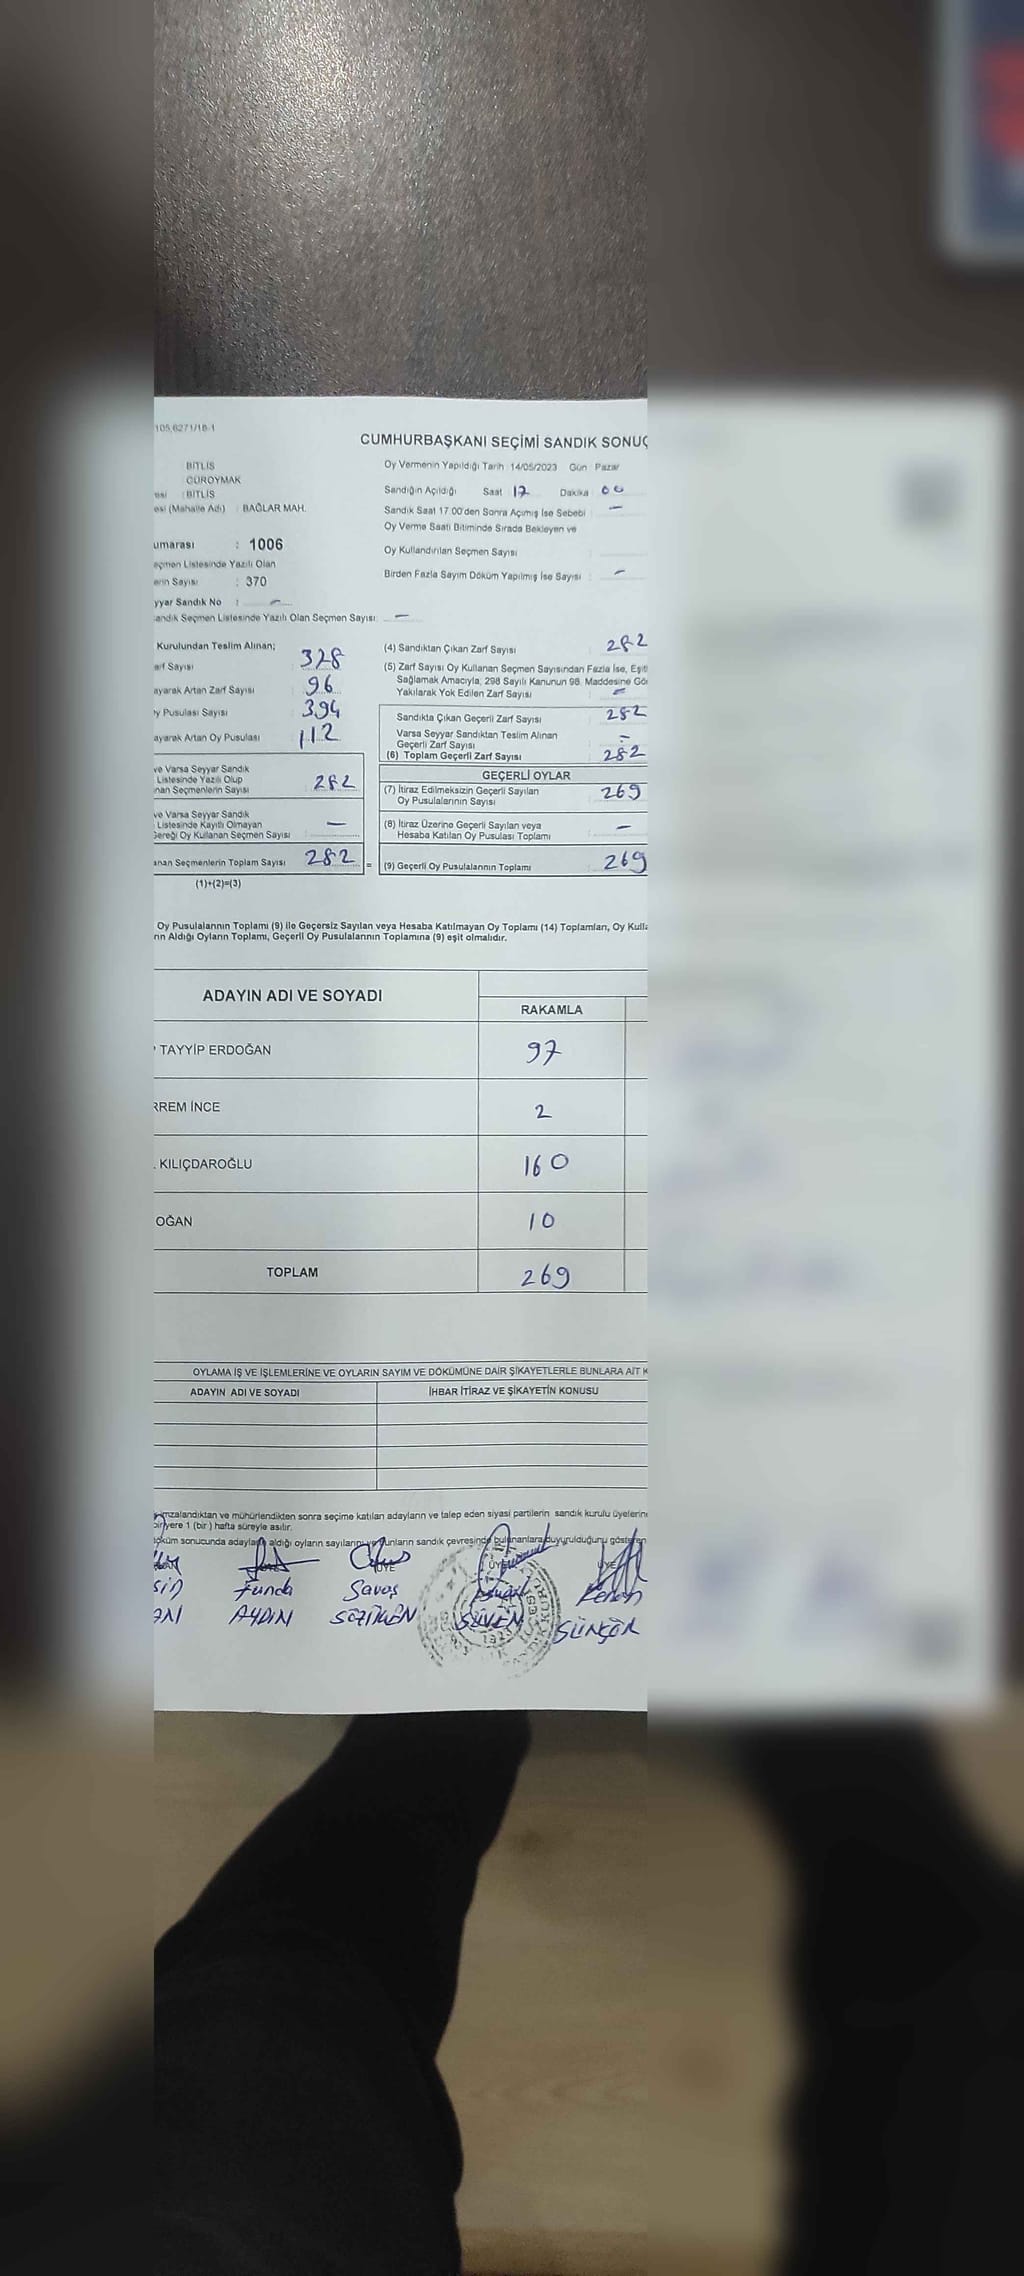 105.6271/18-1
CUMHURBAŞKANI SEÇİMİ SANDIK SONUÇ
BİTLİS
GÜROYMAK
BİTLİS
esi (Mahalle Adı) : BAĞLAR MAH.
Oy Vermenin Yapıldığı Tarih : 14/05/2023 Gün : Pazar
Sandığın Açıldığı Saat 17 Dakika 00
Sandık Saat 17.00'den Sonra Açımış İse Sebebi : —
Oy Verme Saati Bitiminde Sırada Bekleyen ve
Oy Kullandırılan Seçmen Sayısı :
Birden Fazla Sayım Döküm Yapılmış İse Sayısı : —
umarası : 1006
eçmen Listesinde Yazılı Olan
erin Sayısı : 370
yyar Sandık No : —
andık Seçmen Listesinde Yazılı Olan Seçmen Sayısı: —
Kurulundan Teslim Alınan;
arf Sayısı 328
ayarak Artan Zarf Sayısı 96
y Pusulası Sayısı 394
ayarak Artan Oy Pusulası 112
(4) Sandıktan Çıkan Zarf Sayısı 282
(5) Zarf Sayısı Oy Kullanan Seçmen Sayısından Fazla İse, Eşitl
Sağlamak Amacıyla, 298 Sayılı Kanunun 98. Maddesine Gö
Yakılarak Yok Edilen Zarf Sayısı —
Sandıkta Çıkan Geçerli Zarf Sayısı 282
Varsa Seyyar Sandıktan Teslim Alınan
Geçerli Zarf Sayısı —
(6) Toplam Geçerli Zarf Sayısı 282
ve Varsa Seyyar Sandık
Listesinde Yazılı Olup
nan Seçmenlerin Sayısı 282
ve Varsa Seyyar Sandık
Listesinde Kayıtlı Olmayan
Gereği Oy Kullanan Seçmen Sayısı —
anan Seçmenlerin Toplam Sayısı 282 =
(1)+(2)=(3)
GEÇERLİ OYLAR
(7) İtiraz Edilmeksizin Geçerli Sayılan
Oy Pusulalarının Sayısı 269
(8) İtiraz Üzerine Geçerli Sayılan veya
Hesaba Katılan Oy Pusulası Toplamı : —
(9) Geçerli Oy Pusulalarının Toplamı : 269
Oy Pusulalarının Toplamı (9) ile Geçersiz Sayılan veya Hesaba Katılmayan Oy Toplamı (14) Toplamları, Oy Kulla
rın Aldığı Oyların Toplamı, Geçerli Oy Pusulalarının Toplamına (9) eşit olmalıdır.
ADAYIN ADI VE SOYADI
RAKAMLA
TAYYİP ERDOĞAN 97
RREM İNCE 2
. KILIÇDAROĞLU 160
OĞAN 10
TOPLAM 269
OYLAMA İŞ VE İŞLEMLERİNE VE OYLARIN SAYIM VE DÖKÜMÜNE DAİR ŞİKAYETLERLE BUNLARA AİT K
ADAYIN ADI VE SOYADI İHBAR İTİRAZ VE ŞİKAYETİN KONUSU
imzalandıktan ve mühürlendikten sonra seçime katılan adayların ve talep eden siyasi partilerin sandık kurulu üyelerine
bir yere 1 (bir) hafta süreyle asılır.
öküm sonucunda adayların aldığı oyların sayılarını ve bunların sandık çevresinde bulunanlara duyurulduğunu gösteren
ÜYE ÜYE ÜYE
Funda Savaş Kenan
AYDIN SÖZİLKEN SÜVEN SÜNGÜR